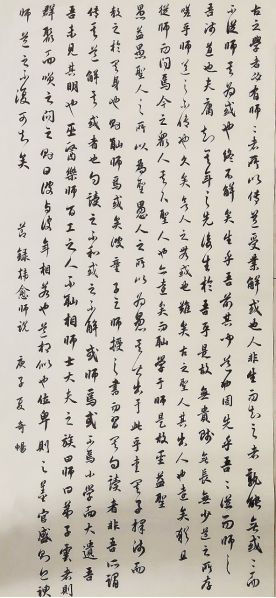 古之學者必有師々者所以傳道受業解惑也人非生而知之者孰能無惑々而
不從師其為惑也終不解矣生乎吾前其聞道也固先乎吾々從而師之
吾師道也夫庸知其年之先後生於吾乎是故無貴賤無長無少道之所存
嗟乎師道之不傳也久矣欲人之無惑也難矣古之聖人其出人也遠矣猶且
從師而問焉今之眾人其下聖人也亦遠矣而恥學于師是故聖益聖
愚益愚聖人之所以為聖愚人之所以為愚其皆出於此乎愛其子擇師而
教之於其身也則恥師焉惑矣彼童子之師授之書而習其句讀者非吾所謂
傳其道解其惑者也句讀之不知惑之不解或師焉或不焉小學而大遺吾
吾未見其明也巫醫樂師百工之人不恥相師士大夫之族曰師曰弟子云者則
群聚而笑之問之則曰彼與彼年相若也道相似也位卑則足羞官盛則近諛
師道之不復可知矣 節錄韓愈師說 庚子夏